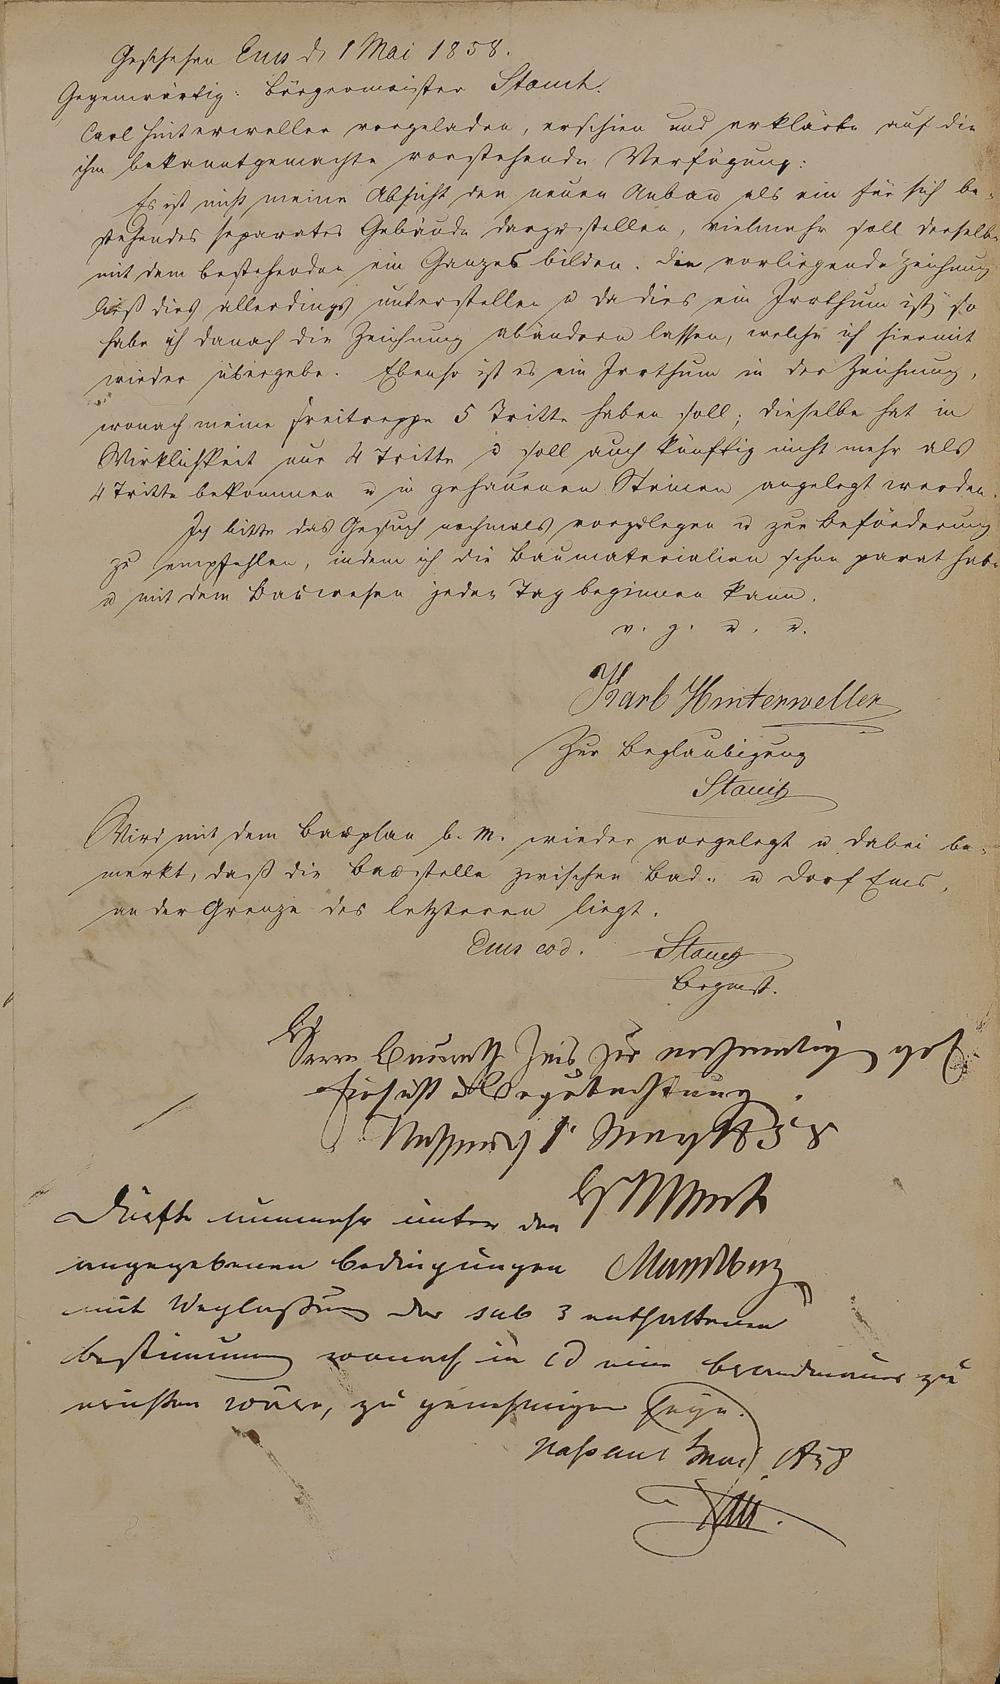 Geschehen Ems d. 1 Mai 1858.
Gegenwärtig: Bürgermeister Stauch.
Carl Hinterweller vorgeladen, erschien und erklärte auf die
ihm bekanntgemachte vorstehende Verfügung:
Es ist nicht meine Absicht den neuen Anbau als ein für sich be-
stehendes separates Gebäude darzustellen, vielmehr soll derselbe
mit dem bestehenden ein Ganzes bilden. Die vorliegende Zeichnung
ließ dies allerdings unterstellen u da dies ein Irrthum ist, so
habe ich danach die Zeichnung abändern lassen, welche ich hiermit
wieder übergebe. Ebenso ist es ein Irrthum in der Zeichnung,
wonach meine Freitreppe 5 Tritte haben soll; dieselbe hat in
Wirklichkeit nur 4 Tritte u soll auch künftig nicht mehr als
4 Tritte bekommen u in gehauenen Steinen angelegt werden.
Ich bitte das Gesuch nochmals vorzulegen u zur Beförderung
zu empfehlen, indem ich die Baumaterialien schon parat habe
u mit dem Bauwesen jeden Tag beginnen kann.
v. g. u. u.
Karl Hinterweller
Zur Beglaubigung
Stauch
Wird mit dem Bauplan b. m. wieder vorgelegt u dabei be-
merkt, daß die Baustelle zwischen Bad- u Dorf Ems,
an der Grenze des letzteren liegt.
Ems eod. Stauch
Brgmst.
Herrn Baurath zur
Einsicht u Begutachtung.
Nassau 1858
Dürfte nunmehr unter den
angegebenen Bedingungen
mit Weglassung der sub 3 enthaltenen
Bestimmung wonach in cd eine Brandmauer zu
errichten wäre, zu genehmigen seyn.
Nassau Mai 1858